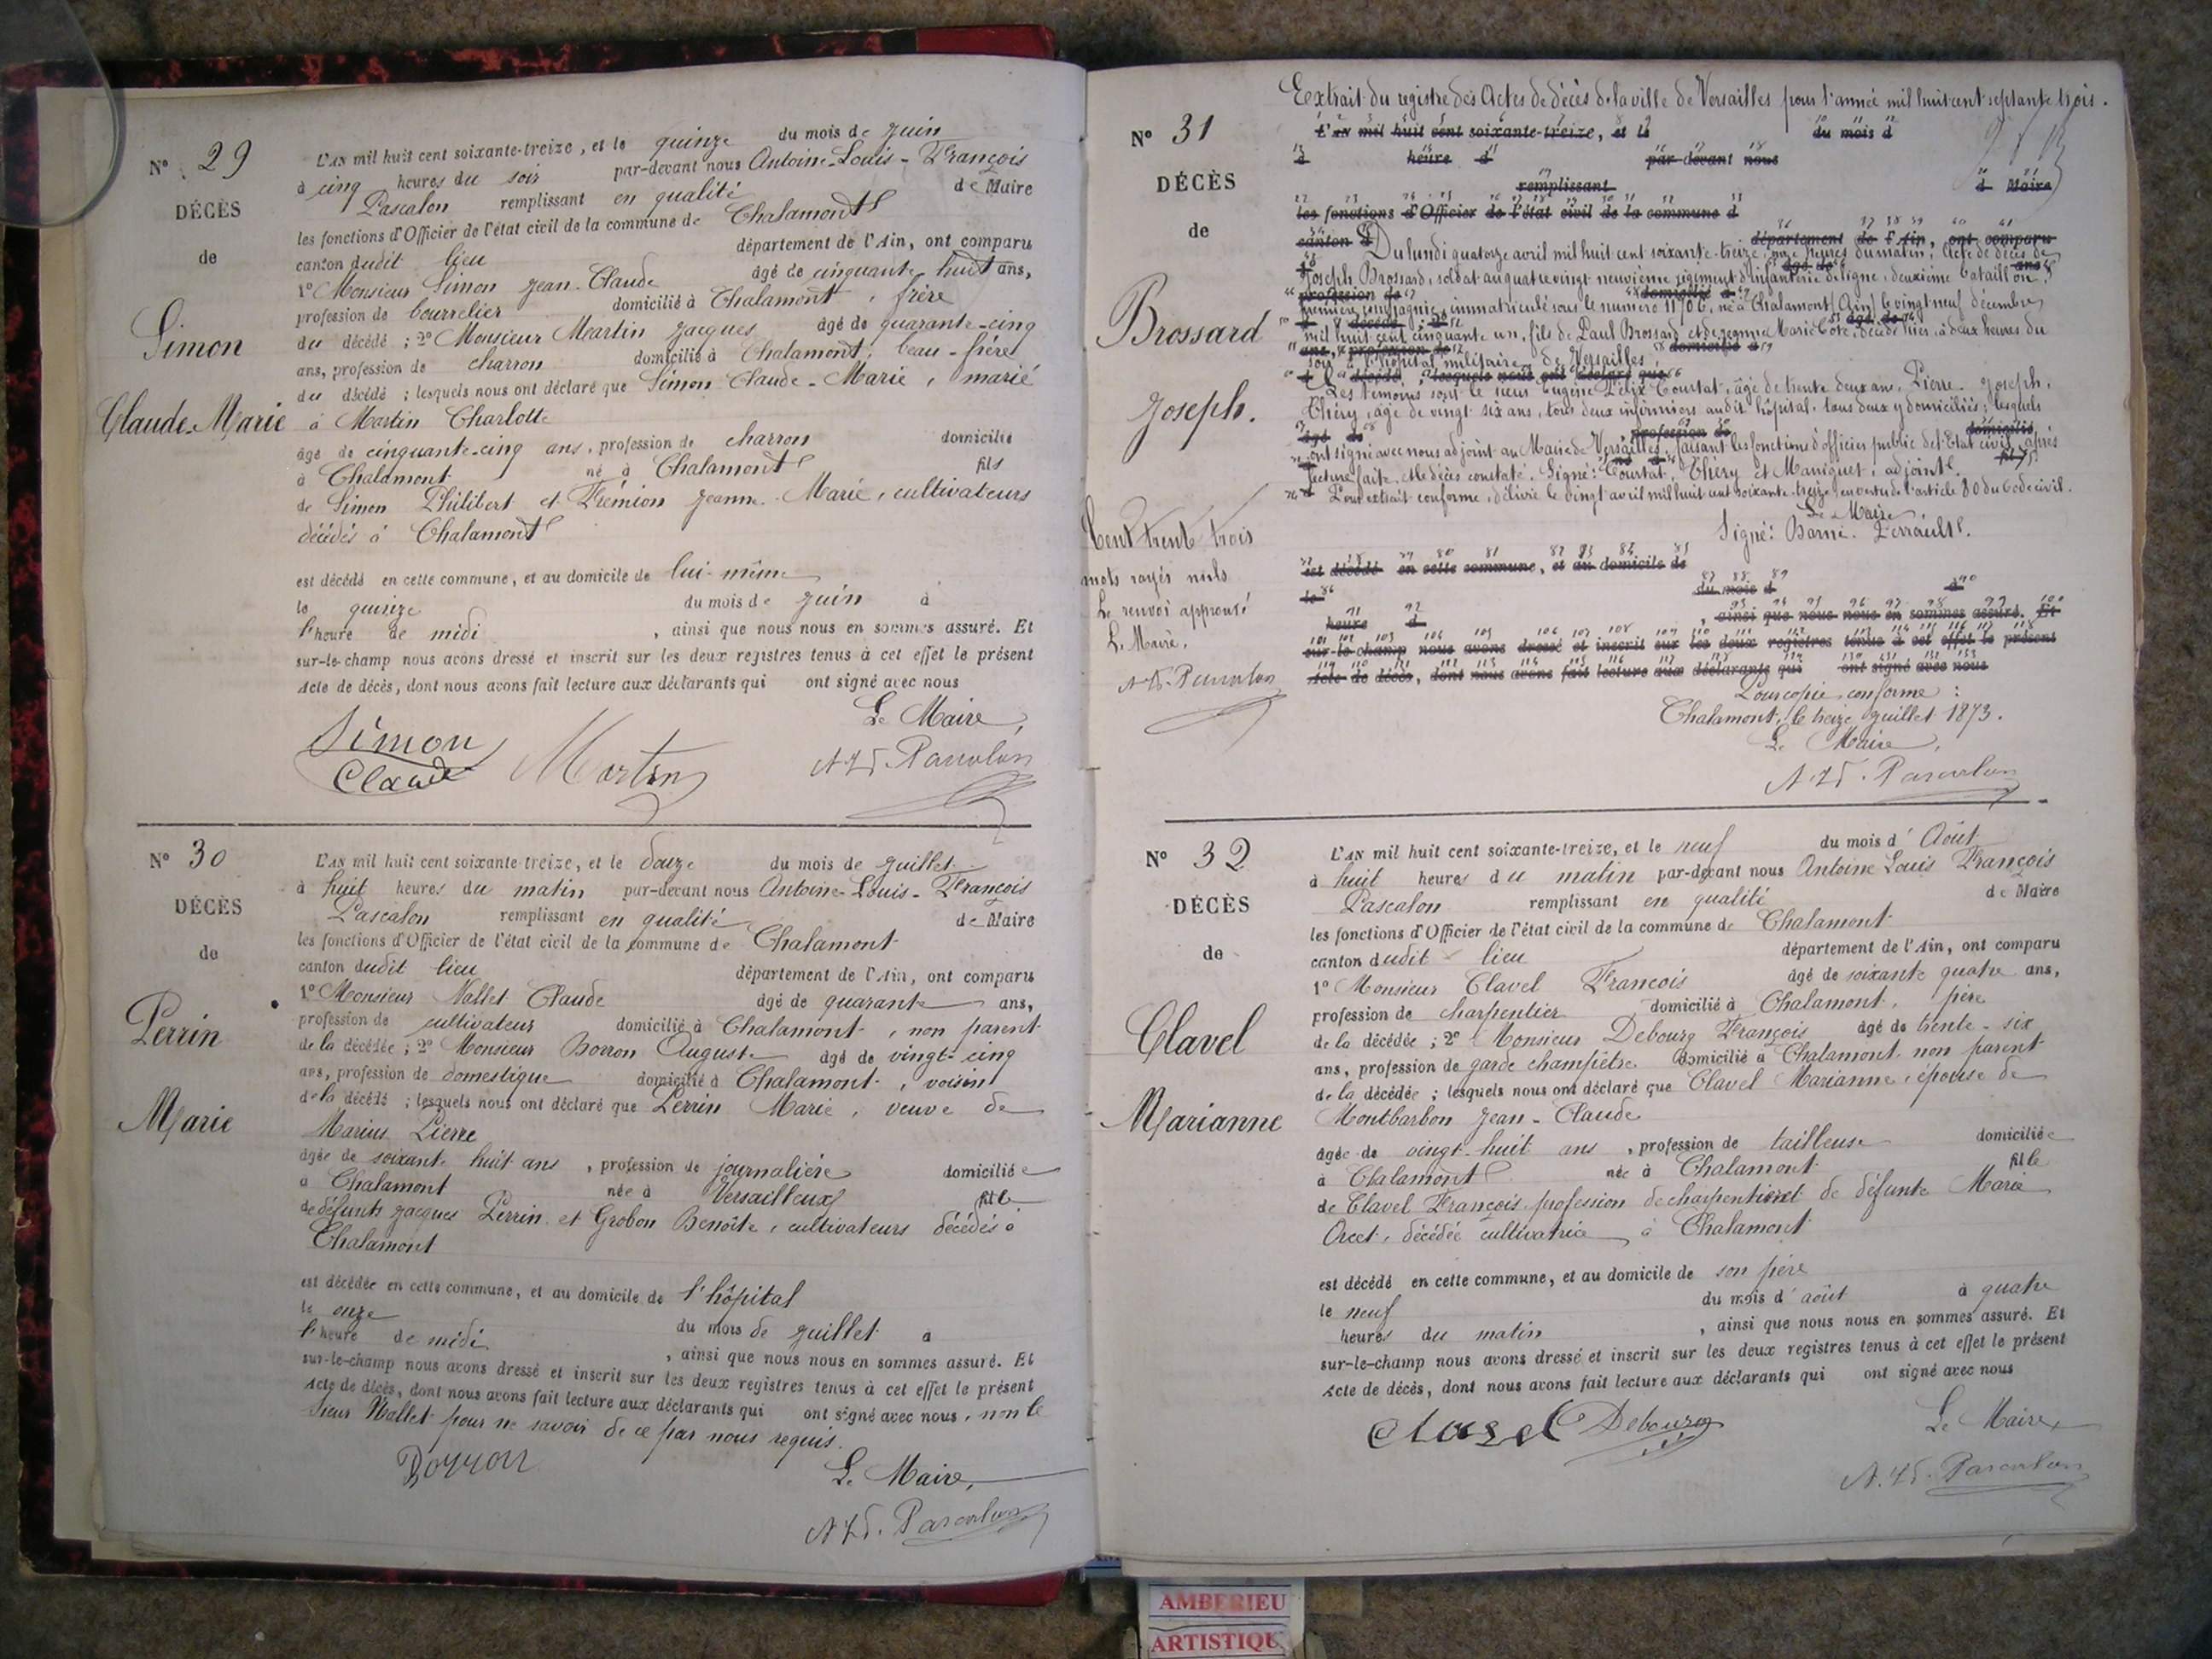 N° 29
DÉCÈS
de
Simon
Claude-Marie
L'AN mil huit cent soixante-treize, et le quinze du mois de Juin
à cinq heures du soir par-devant nous Antoine-Louis-François
Pascalon remplissant en qualité de Maire
les fonctions d'Officier de l'état civil de la commune de Chalamont
canton dudit lieu département de l'Ain, ont comparu
1° Monsieur Simon Jean-Claude âgé de cinquante-huit ans,
profession de bourrelier domicilié à Chalamont, frère
du décédé ; 2° Monsieur Martin Jacques âgé de quarante-cinq
ans, profession de charron domicilié à Chalamont, beau-frère
du décédé ; lesquels nous ont déclaré que Simon Claude-Marie, marié
à Martin Charlotte
âgé de cinquante-cinq ans, profession de charron domicilié
à Chalamont né à Chalamont fils
de Simon Philibert et Frémion Jeanne-Marie, cultivateurs
décédés à Chalamont
est décédé en cette commune, et au domicile de lui-même
le quinze du mois de Juin à
l'heure de midi, ainsi que nous nous en sommes assuré. Et
sur-le-champ nous avons dressé et inscrit sur les deux registres tenus à cet effet le présent
Acte de décès, dont nous avons fait lecture aux déclarants qui ont signé avec nous
Le Maire,
Simon
Claude Martin A. L. F. Pascalon
N° 30
DÉCÈS
de
Perrin
Marie
L'AN mil huit cent soixante-treize, et le douze du mois de Juillet
à huit heures du matin par-devant nous Antoine-Louis-François
Pascalon remplissant en qualité de Maire
les fonctions d'Officier de l'état civil de la commune de Chalamont
canton dudit lieu département de l'Ain, ont comparu
1° Monsieur Nallet Claude âgé de quarante ans,
profession de cultivateur domicilié à Chalamont, non parent
de la décédée ; 2° Monsieur Borron Auguste âgé de vingt-cinq
ans, profession de domestique domicilié à Chalamont, voisin
de la décédé ; lesquels nous ont déclaré que Perrin Marie, veuve de
Marius Pierre
âgée de soixante huit ans, profession de journalière domiciliée
à Chalamont née à Versailleux fille
de défunts Jacques Perrin et Grobon Benoîte, cultivateurs décédés à
Chalamont
est décédée en cette commune, et au domicile de l'hôpital
le onze du mois de Juillet à
l'heure de midi, ainsi que nous nous en sommes assuré. Et
sur-le-champ nous avons dressé et inscrit sur les deux registres tenus à cet effet le présent
Acte de décès, dont nous avons fait lecture aux déclarants qui ont signé avec nous, non le
Sieur Nallet pour ne savoir de ce par nous requis.
Borron Le Maire,
A. L. F. Pascalon
Extrait du registre des Actes de décès de la ville de Versailles pour l'année mil huit cent septante trois.
N° 31
DÉCÈS
de
Brossard
Joseph.
L'AN mil huit cent soixante-treize, et le du mois d
à heure d par-devant nous
remplissant d Maire
les fonctions d'Officier de l'état civil de la commune d
canton d département de l'Ain, ont comparu
Du lundi quatorze avril mil huit cent soixante-treize, onze heures du matin, Acte de décès de
Joseph Brossard, soldat au quatre vingt neuvième régiment d'infanterie de ligne, deuxième bataillon,
première compagnie, immatriculé sous le numéro 11706, né à Chalamont (Ain) le vingt neuf décembre
mil huit cent cinquante un, fils de Paul Brossard et de Jeanne Marie Cote, décédé hier, à deux heures du
soir à l'hôpital militaire de Versailles.
Les témoins sont le sieur Eugène Félix Courtat, âgé de trente deux ans, Pierre Joseph
Théry, âgé de vingt six ans, tous deux infirmiers audit hôpital, tous deux y domiciliés ; lesquels
ont signé avec nous adjoint au Maire de Versailles, faisant les fonctions d'officier public de l'Etat civil, après
lecture faite et le décès constaté. Signé : Courtat, Théry et Maniquet, adjoint.
Pour extrait conforme, délivré le vingt avril mil huit cent soixante-treize en vertu de l'article 80 du Code civil.
Le Maire
Signé :
Cent trente trois
mots rayés nuls
Le renvoi approuvé
Le Maire,
A. L. F. Pascalon
est décédé en cette commune, et au domicile de
le du mois d à
heure d, ainsi que nous nous en sommes assuré. Et
sur-le-champ nous avons dressé et inscrit sur les deux registres tenus à cet effet le présent
Acte de décès, dont nous avons fait lecture aux déclarants qui ont signé avec nous
Pour copie conforme :
Chalamont, le treize Juillet 1873.
Le Maire,
A. L. F. Pascalon
N° 32
DÉCÈS
de
Clavel
Marianne
L'AN mil huit cent soixante-treize, et le neuf du mois d'Août
à huit heures du matin par-devant nous Antoine Louis François
Pascalon remplissant en qualité de Maire
les fonctions d'Officier de l'état civil de la commune de Chalamont
canton dudit lieu département de l'Ain, ont comparu
1° Monsieur Clavel François âgé de soixante quatre ans,
profession de charpentier domicilié à Chalamont, père
de la décédée ; 2° Monsieur Debourg François âgé de trente-six
ans, profession de garde champêtre domicilié à Chalamont, non parent
de la décédée ; lesquels nous ont déclaré que Clavel Marianne, épouse de
Montbarbon Jean-Claude
âgée de vingt-huit ans, profession de tailleuse domiciliée
à Chalamont née à Chalamont fille
de Clavel François, profession de charpentier et de défunte Marie
Orcet, décédée cultivatrice à Chalamont
est décédé en cette commune, et au domicile de son père
le neuf du mois d'août à quatre
heures du matin, ainsi que nous nous en sommes assuré. Et
sur-le-champ nous avons dressé et inscrit sur les deux registres tenus à cet effet le présent
Acte de décès, dont nous avons fait lecture aux déclarants qui ont signé avec nous
Clavel Debourg Le Maire,
A. L. F. Pascalon
AMBERIEU
ARTISTIQU